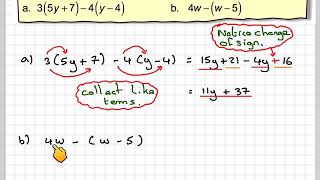 a. 3(5y+7)-4(y-4) b. 4w-(w-5)
Notice change of sign.
a) 3(5y+7) -4(y-4) = 15y+21-4y+16
collect like terms.
= 11y + 37
b) 4w - (w-5)